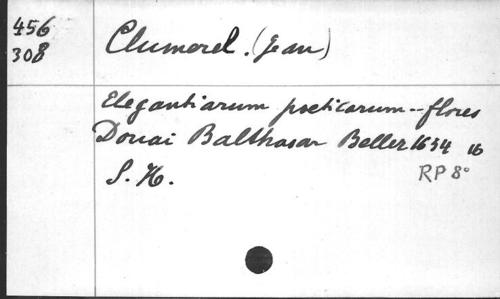 456
308
Clumorel. (Jean)
Elegantiarum poeticarum -- flores
Douai Balthasar Beller 1634 16
S. H.
RP 8°